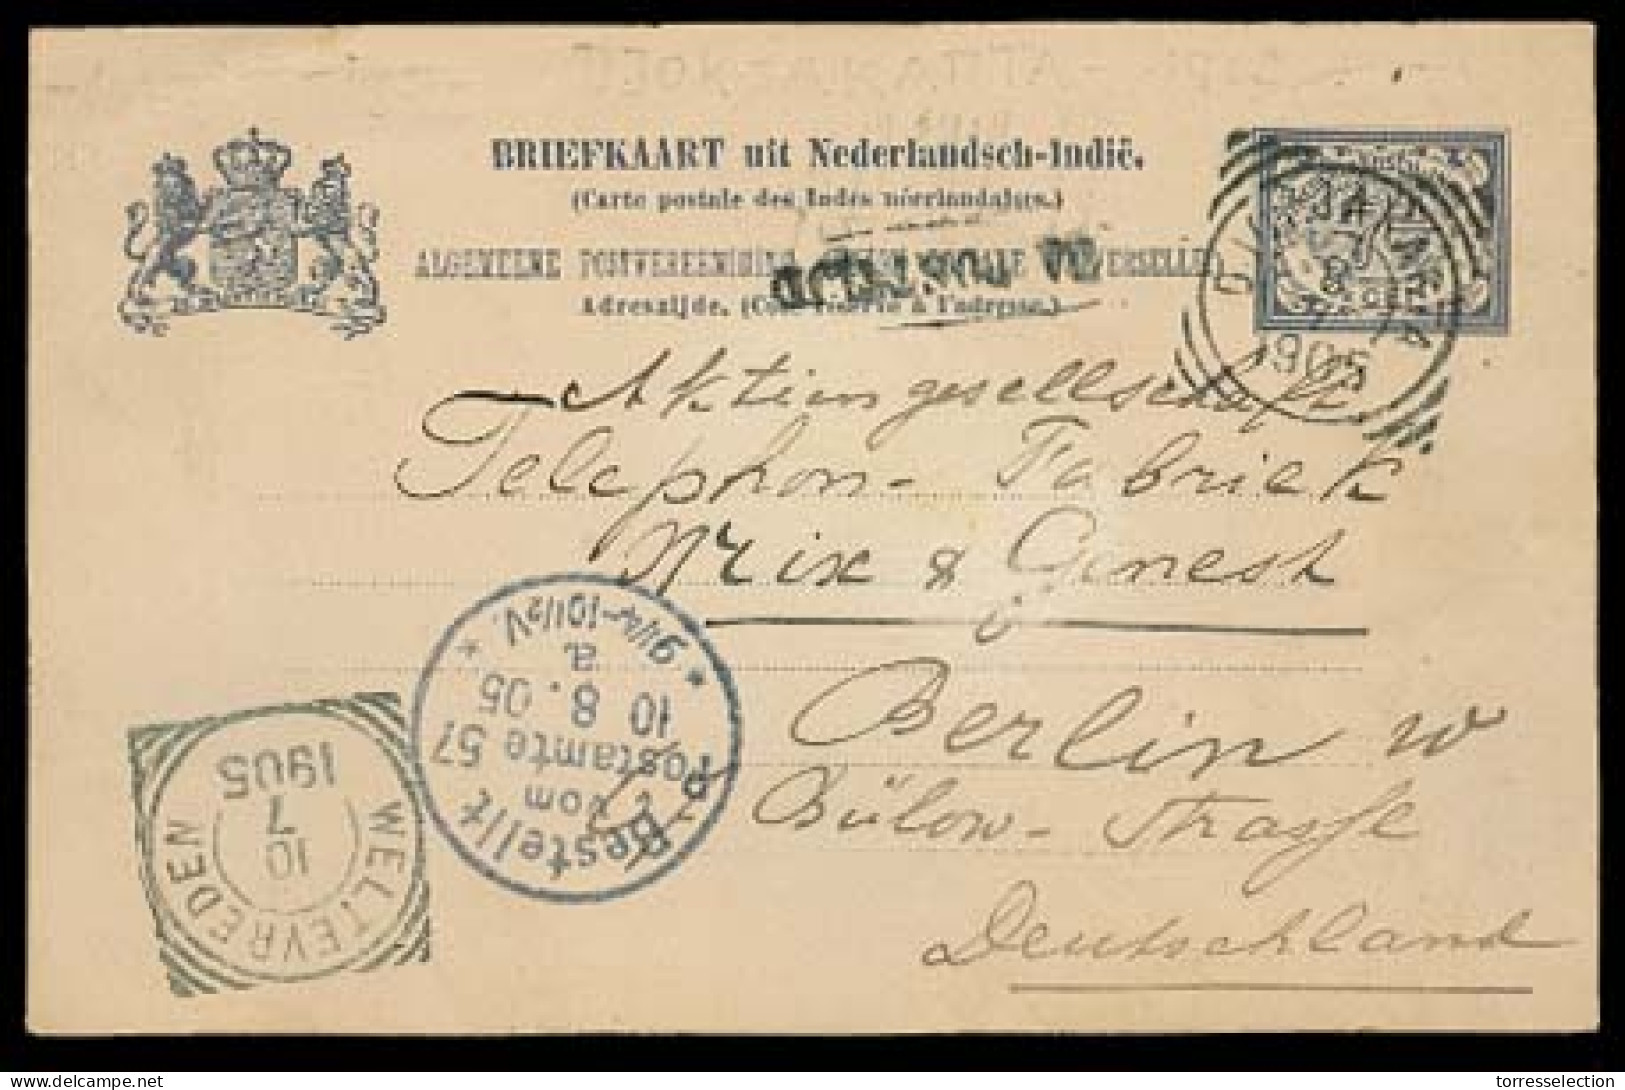 BRIEFKAART uit Nederlandsch-Indië.
(Carte postale des Indes néerlandaises.)
ALGEMEENE POSTVEREENIGING
Adreszijde. (Côté réservé à l'adresse.)
1905
Aktiengesellschaft
Telephon- Fabriek
& Genest
Berlin W
Bülow- Strasse
Deutschland
Bestellt
vom
Postamte 57
10 8. 05
a.
9 1/4-10 1/2 V.
WELTEVREDEN
10
7
1905
delcampe.net
torresselection